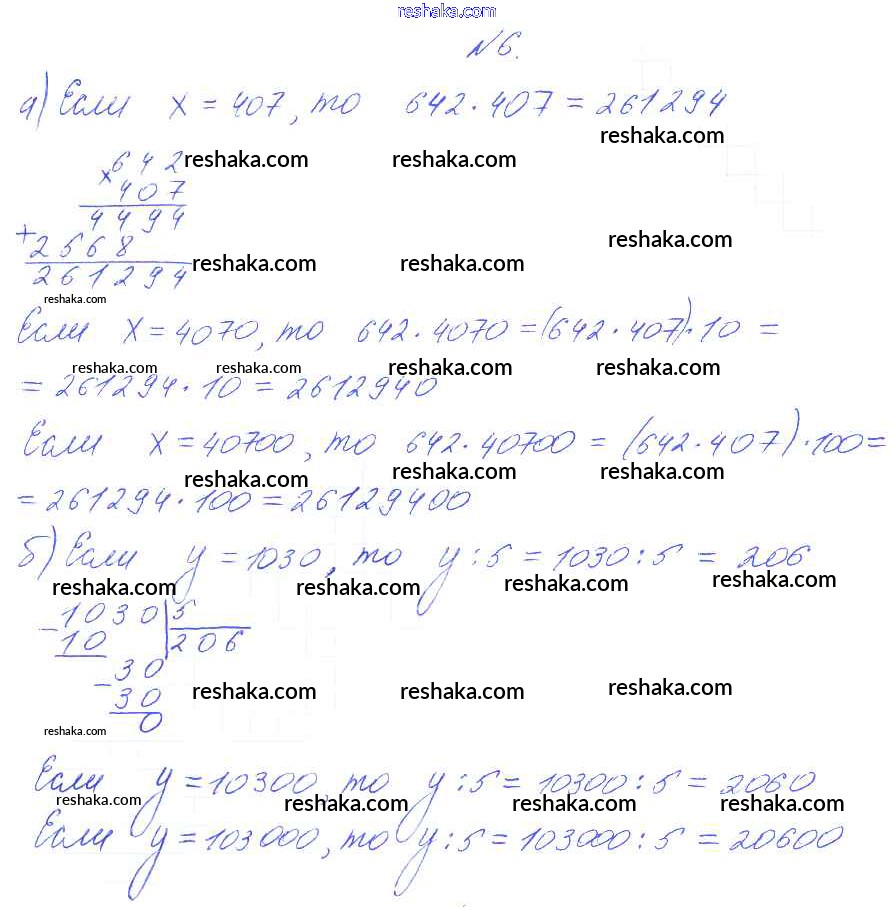 reshaka.com
№6.
а) Если x = 407, то 642·407 = 261294
reshaka.com
×642 reshaka.com reshaka.com
407
4494
+ reshaka.com
2568
261294 reshaka.com reshaka.com
reshaka.com
Если x = 4070, то 642·4070 = (642·407)·10 =
reshaka.com reshaka.com reshaka.com reshaka.com
= 261294·10 = 2612940
Если x = 40700, то 642·40700 = (642·407)·100 =
reshaka.com reshaka.com reshaka.com
= 261294·100 = 26129400
б) Если y = 1030, то y : 5 = 1030 : 5 = 206
reshaka.com reshaka.com reshaka.com reshaka.com
−1030|5
10 206
−30
30 reshaka.com reshaka.com reshaka.com
0
reshaka.com
Если y = 10300, то y : 5 = 10300 : 5 = 2060
reshaka.com reshaka.com reshaka.com reshaka.com
Если y = 103000, то y : 5 = 103000 : 5 = 20600